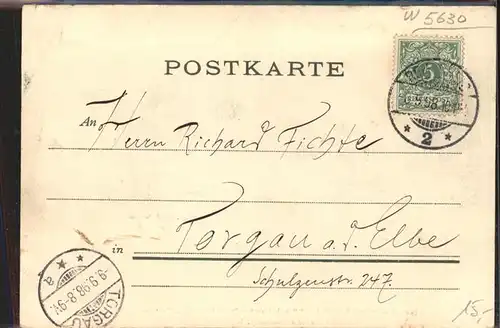 W 5630
POSTKARTE
5
9.9.98.
* 2 *
An Herrn Richard Fichte
in Torgau a. d. Elbe
Schulzenstr. 247.
TORGAU
-9.9.98.8-9V.
* * a
15,-